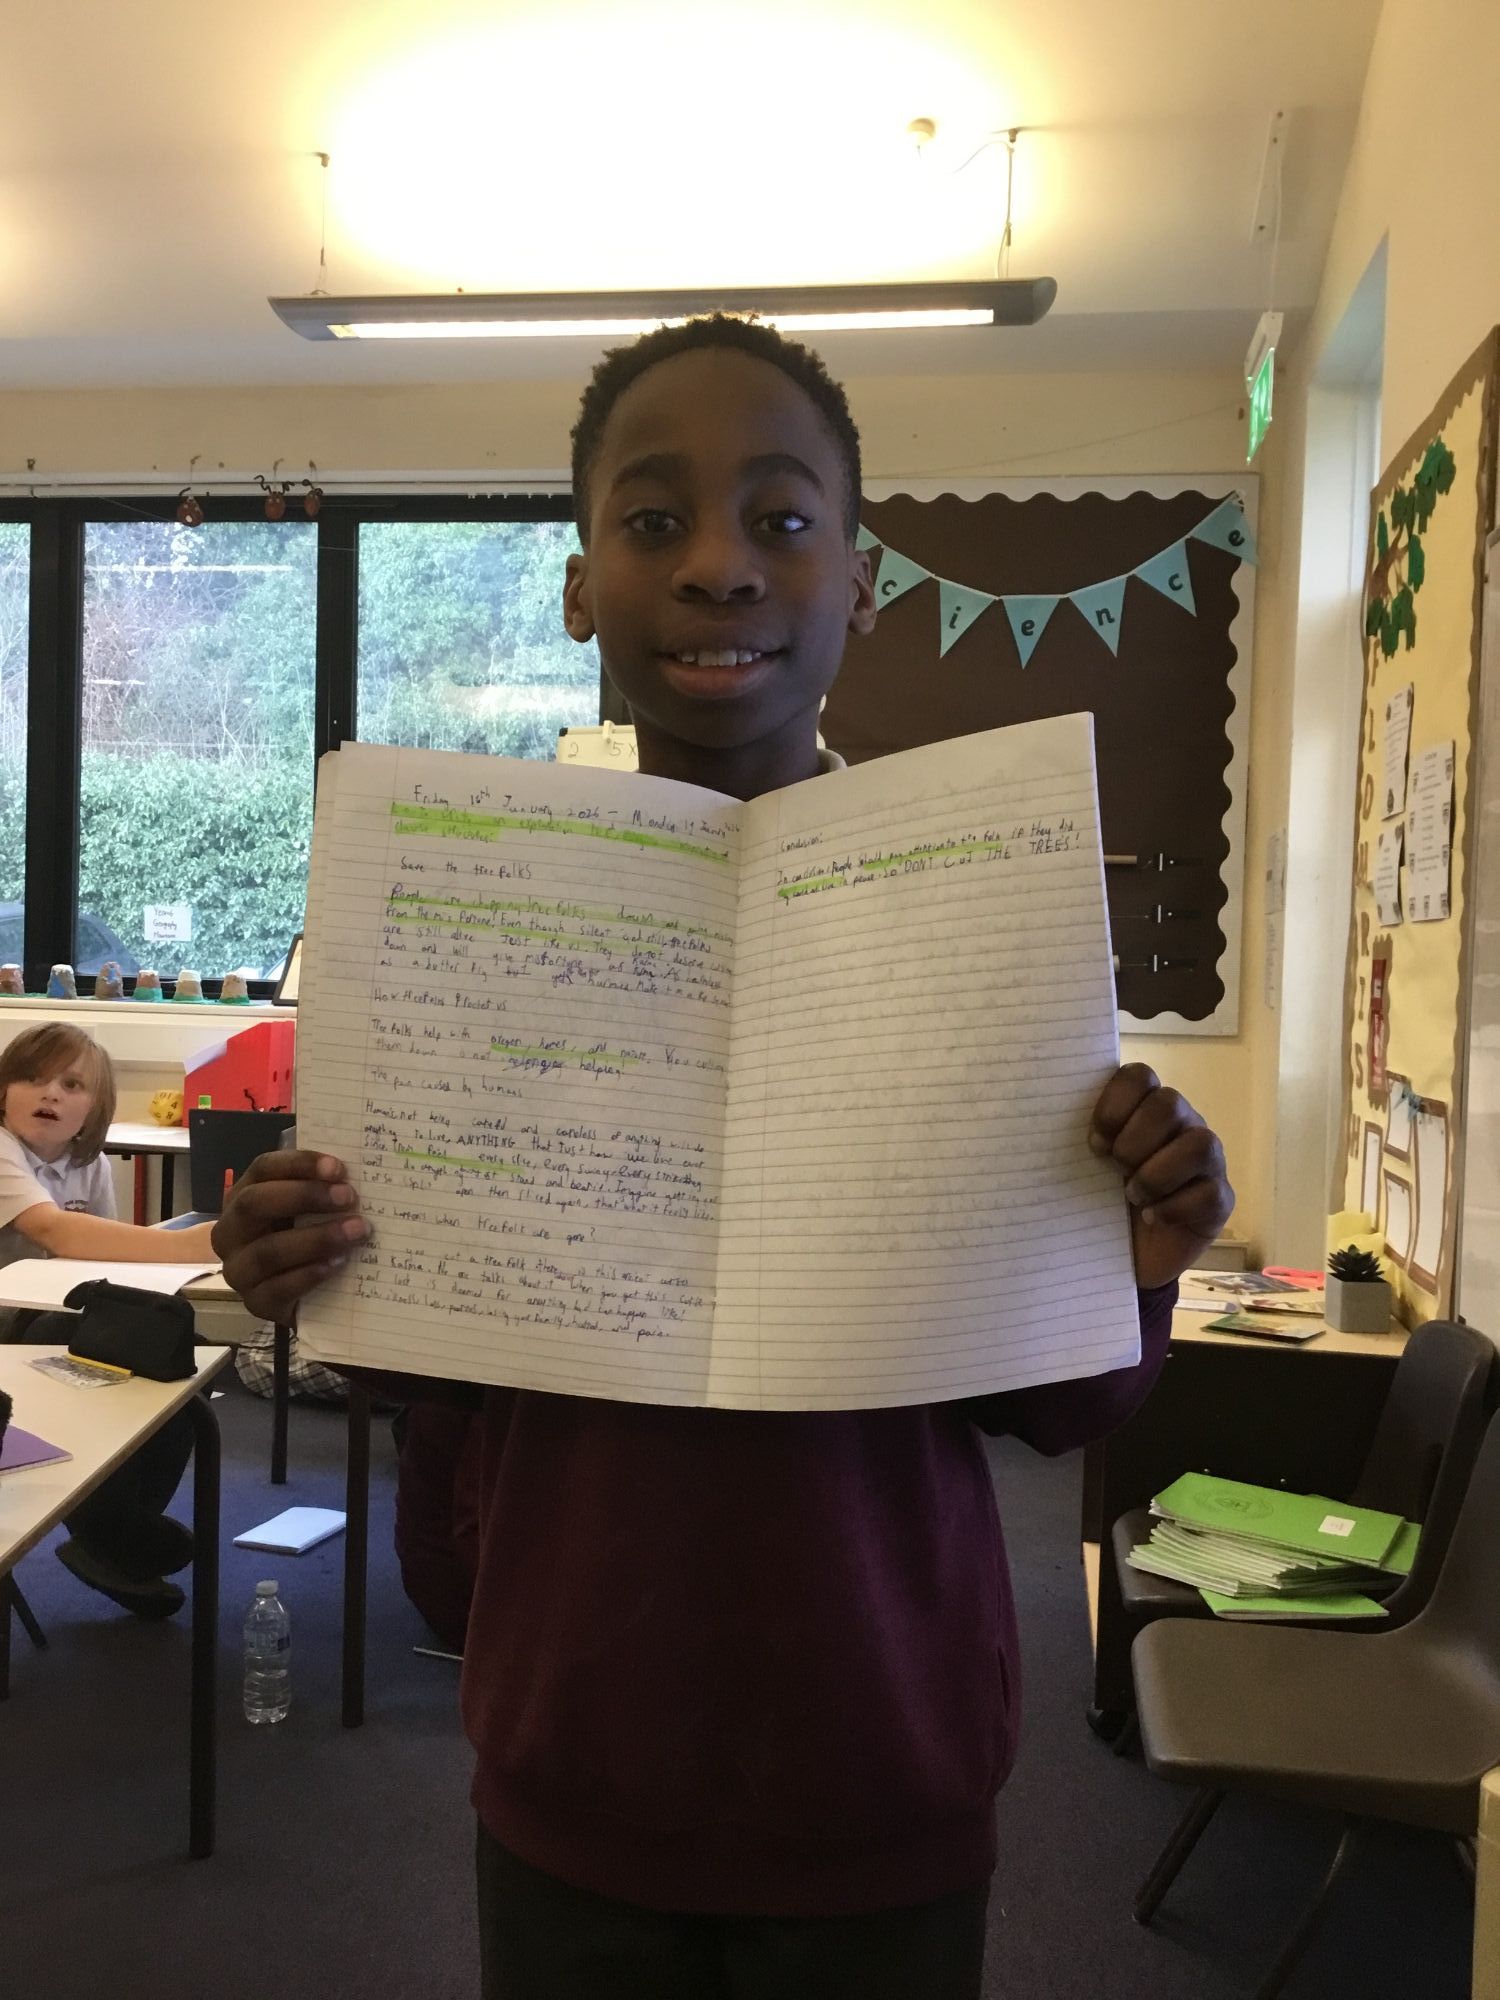 Friday 16th January 2026 - Monday 19 January 2026
L.O To write an explanation text using
choose structures.
Save the tree folks
People are chopping tree folks down and going missing
from the misfortune! Even though silent and still, tree folks
are still alive Just like us. They do not deserve cutting
down and will give misfortune as Karma. As harmless
as a butterfly but
How tree folks Protect us
Tree folks help with oxegen, homes, and nature. You cutting
them down is not helping!
The pain caused by humans
Humans not being careful and careless of anything will do
anything to live, ANYTHING that Just how we live ever
since. Trees feel every slice, every swing every
wont do anything but stand and bear it. Imagine getting your
torso split open then sliced again, that's what it feels like.
What happens when tree folk are gone?
When you cut a tree folk there is this
called Karma. No one talks about it when you get this
your luck is doomed for anything bad can happen like!
death, illness, loss, losing your family, hatred, and pain.
Conclusion:
In conclusion, People should pay attention to tree folk if they did
we live in peace. So DONT CUT THE TREES!
2 5 x
cience
Year 6
Geography
FLOURISH